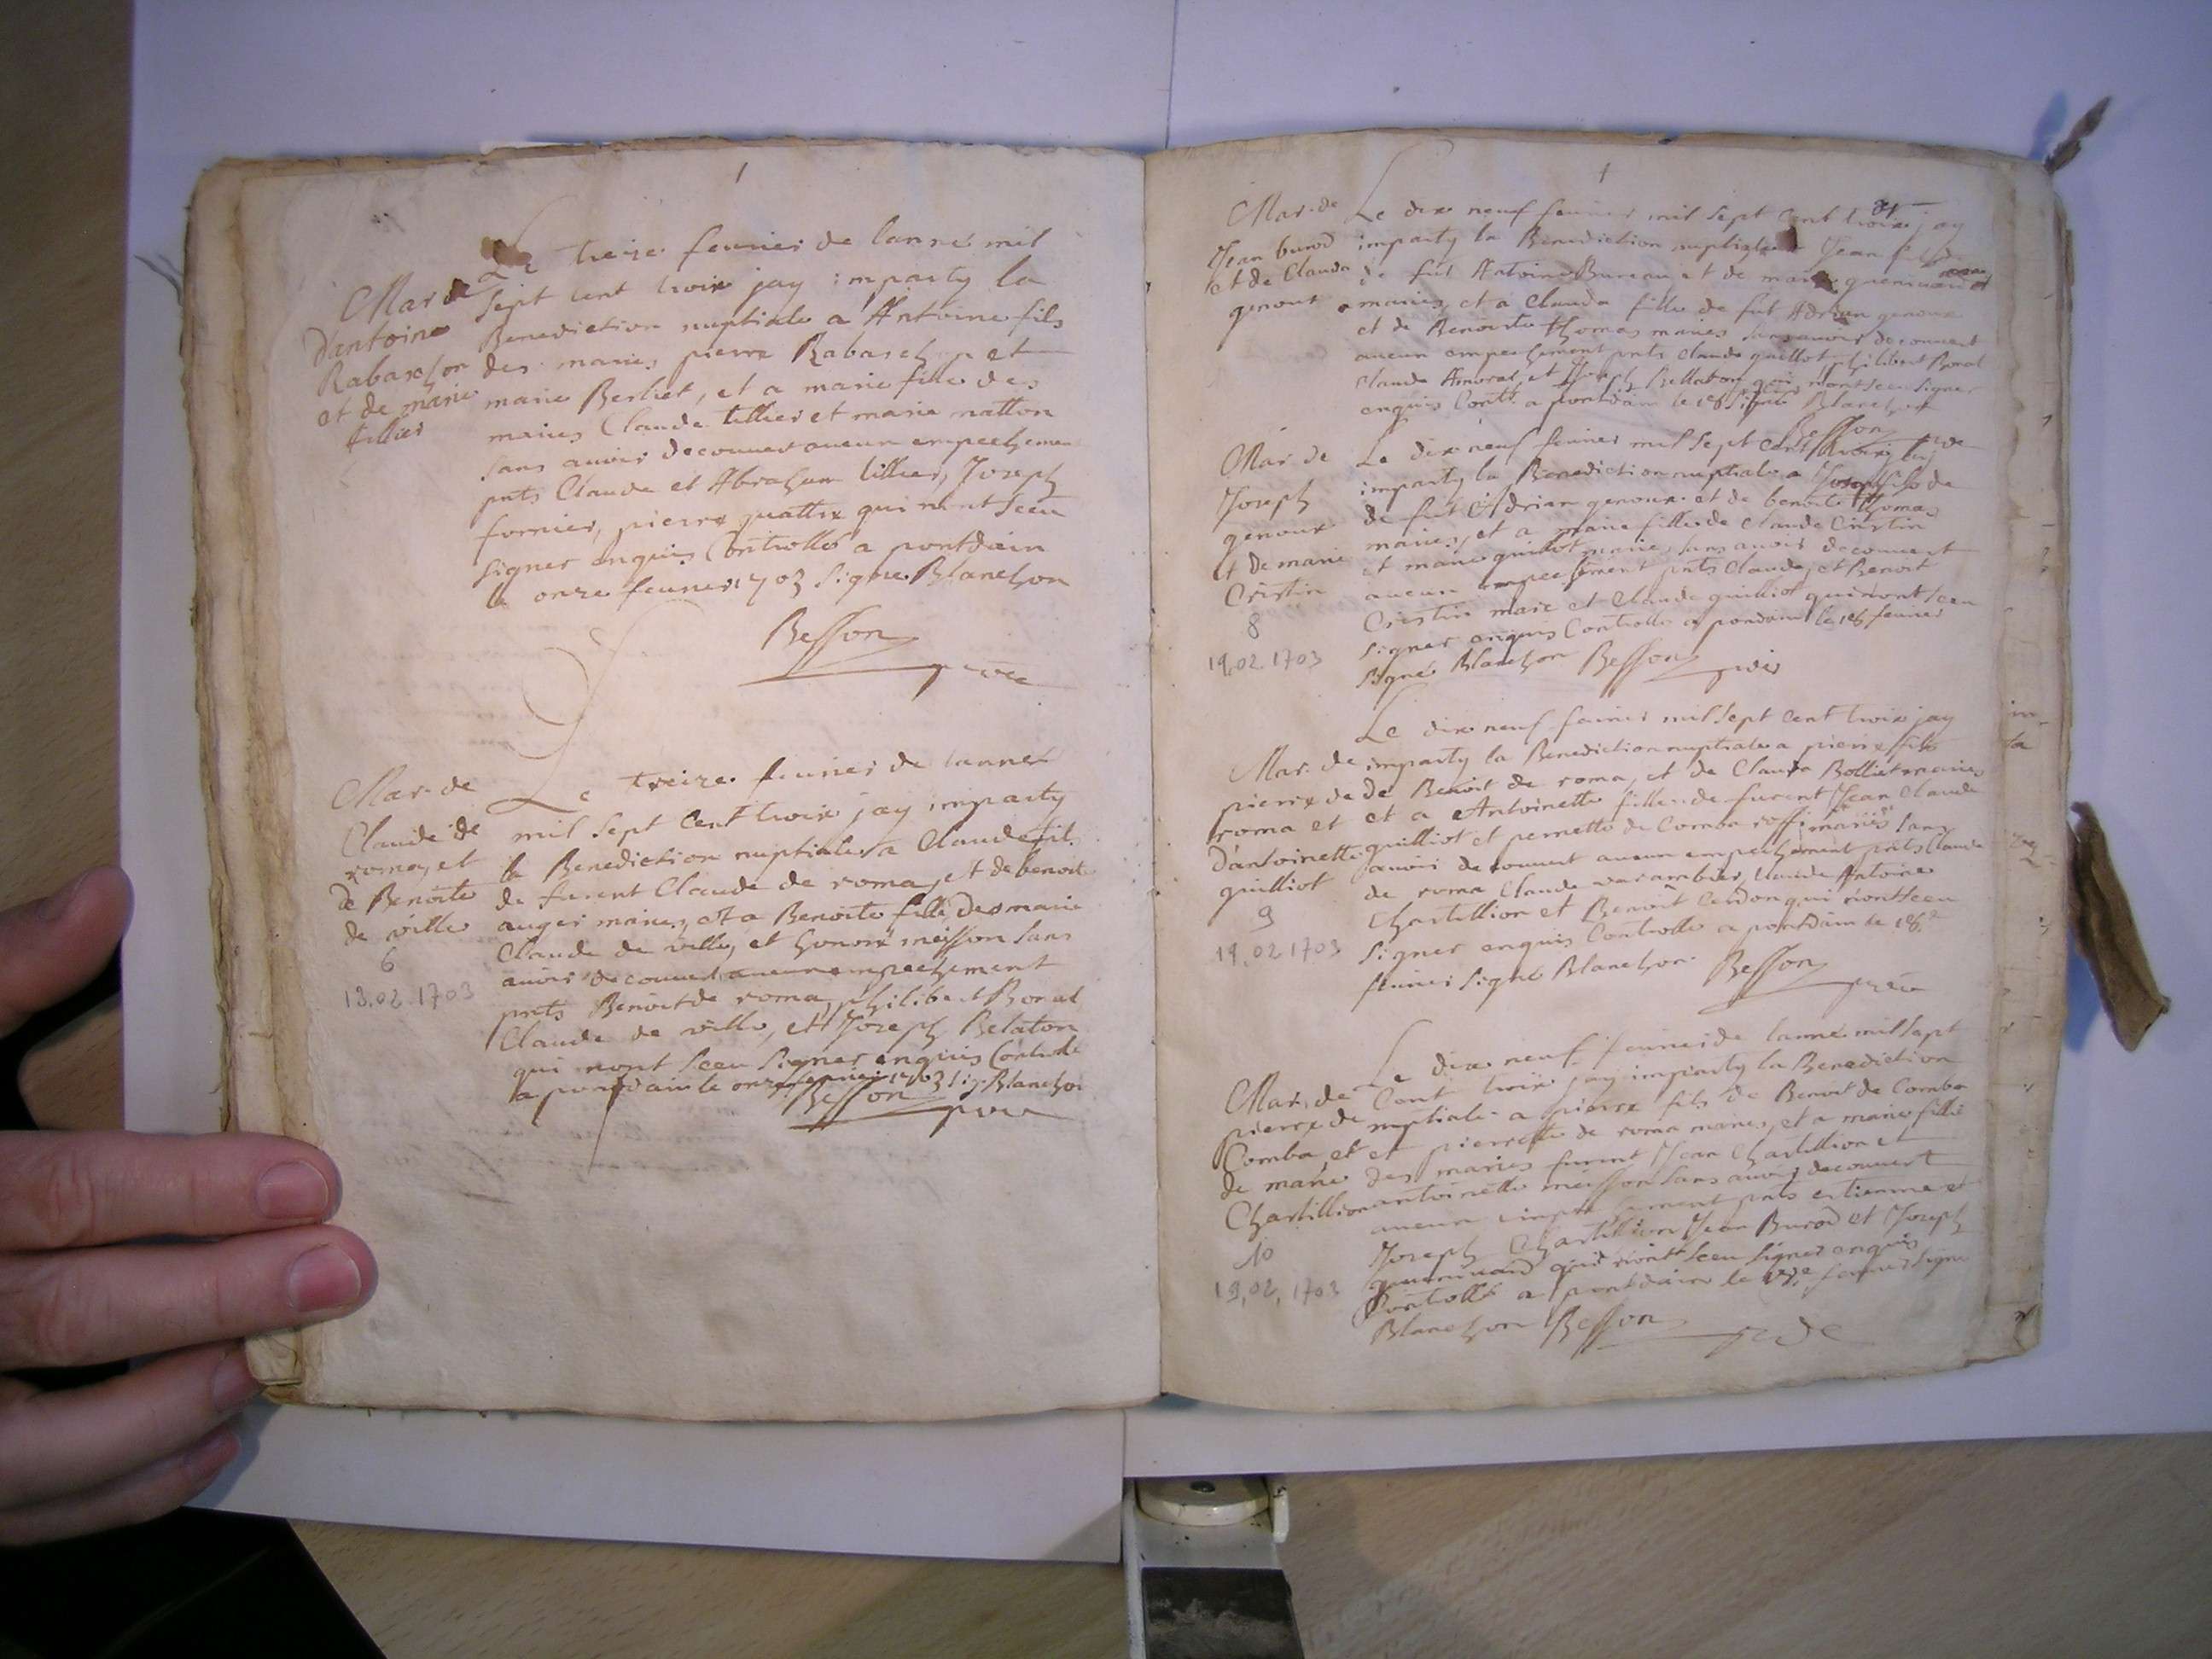 1
Mar de
d'antoine
Rabaschon
et de marie
tillier
Le treize feurier de lanné mil
sept cent troix jay imparty la
Benediction nuptiale a Antoine fils
des maries pierre Rabasch et
marie Berliet, et a marie fille des
maries Claude tillier et marie natton
sans auoir decouuert aucun empechemen
pnts Claude et Abraham tillier, Joseph
fornier, pierre quattre qui nont sceu
signer enquis Controllé a pontdain
le onze feurier 1703 signe Blanchon
Besson
Mar de
Claude de
roma, et
de Benoite
de ville
6
13.02.1703
Le treize feurier de lanneé
mil sept Cent troix jay imparty
la Benediction nuptiale a Claude fils
de furent Claude de roma, et de benoite
auger maries, et a Benoite fille des marie
Claude de ville, et honoré meisson sans
auoir decouuert aucun empechement
pnts Benoit de roma, philibert Bonat
Claude de ville, et Joseph Belaton
qui nont sceu signer enquis Controle
a pontdain le onze feurier 1703 sig. Blanchon
Besson
1
Mar. de
Jean burod
et de Clauda
genout
Le dix neuf feurier mil sept Cent troix jay
imparty la Benediction nuptiale a Jean fils de
de fut Antoine Bureau et de marie
maries, et a Clauda fille de fut Adrian genoux
et de Benoite thomas maries sans auoir decouuert
aucun empechement pnts Claude guillot philibert Bonat
Claude Amorat et Joseph Bellaton qui nont sceu signer
enquis Contt. a pontdain le 16 signé Blanchon
Besson
Mar de
Joseph
genoux
et de marie
Cristin
8
19.02.1703
Le dix neuf feurier mil sept Cent troix jay
imparty la Benediction nuptiale a Joseph fils de
de fut Adrian genoux et de benoite thomas
maries, et a marie fille de Claude Cristin
et marie guillot maries sans auoir decouuert
aucun empechement pnts Claude, et Benoit
Cristin marc et Claude guilliot qui nont sceu
signer enquis Controllé a pondain le 16 feurier
signé Blanchon Besson
Mar. de
pierre de
roma et
d'antoinette
guilliot
9
19.02.1703
Le dix neuf feurier mil sept Cent troix jay
imparty la Benediction nuptiale a pierre fils
de Benoit de roma, et de Clauda Bolliet maries
et a Antoinette fille de furent Jean Claude
guilliot et pernette de Comba roffi maries sans
auoir decouuert aucun empechement pnts Claude
de roma Claude varambier, Claude Antoine
Chastillion et Benoit Cerdon qui nont sceu
signer enquis Controllé a pontdain le 16e
feurier signé Blanchon. Besson
Mar. de
pierre de
Comba et
de marie
Chastillion
10
19,02,1703
Le dix neuf feurier de lanné mil sept
Cent troix jay imparty la Benediction
nuptiale a pierre fils de Benoit de Comba
et pierrette de roma maries, et a marie fille
des maries furent Jean Chastillion et
antoinette meisson sans auoir decouuert
aucun empechement pnts estienne et
Joseph Chastillion Jean Burod et Joseph
quenivard qui nont sceu signer enquis
Controllé a pontdain le feurier signé
Blanchon Besson